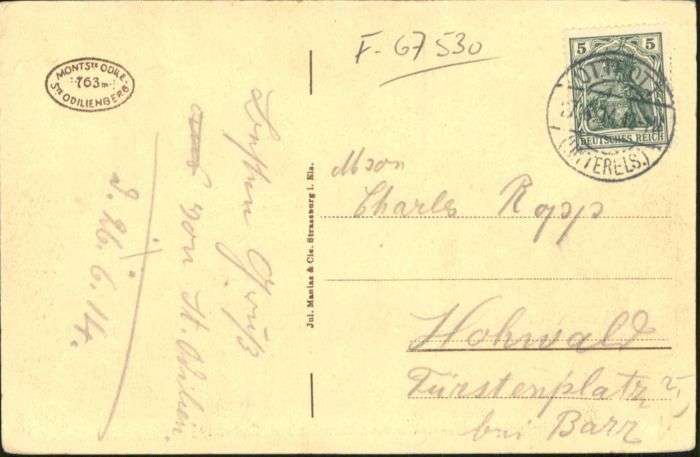 MONT STE ODILE
763 m
STE ODILIENBERG
F-67530
5 5
DEUTSCHES REICH
OTTROTT
(UNTERELS.)
Besten Gruß
von St. Odilien.
d. 26.6.14.
Jul. Manias & Cie. Strassburg i. Els.
Mson
Charles Ropp
Hohwald
Fürstenplatz
bei Barr